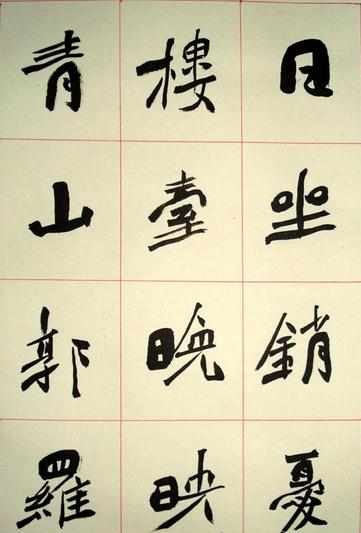 日坐銷憂
樓臺晚映
青山郭羅